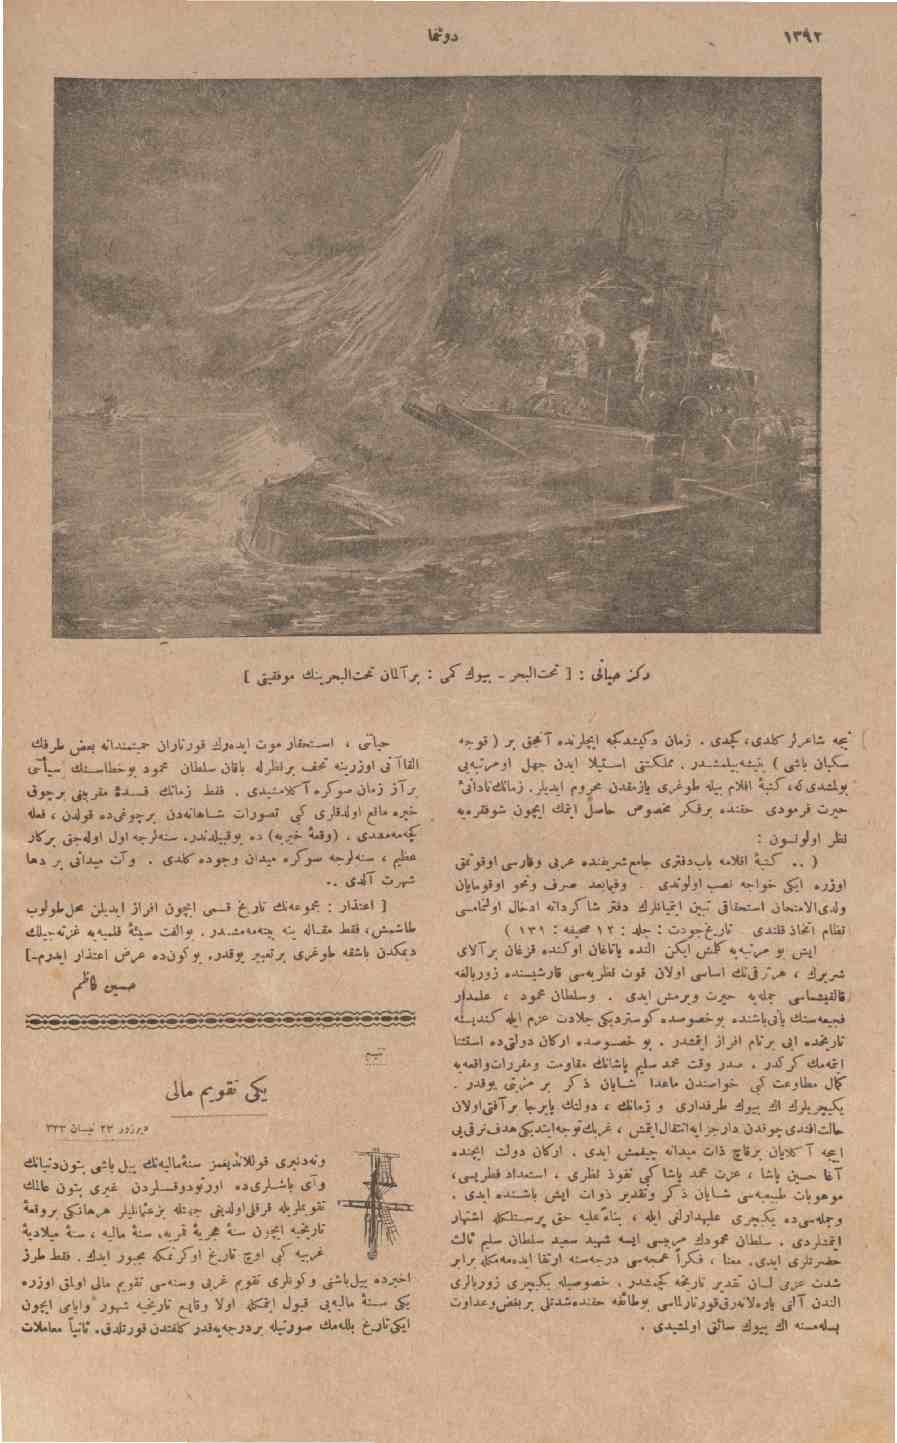 ١٣٩٢
دوننما
دكز حياتى : [ تحت‌البحر ـ بيوك كمى : بر آلمان تحت‌البحرينك موفقيتى ]
نيجه شاعرلر كلدى، كچدى . زمان دكيشدكجه ايچلرنده آنجق بر ( قوجه
سكبان باشى ) يتيشه‌بيلمشدر . مملكتى استيلا ايدن جهل اومرتبه‌يى
بولمشدى‌كه، كتبۀ اقلام بيله طوغرى يازمقدن محروم ايديلر. زمانك‌نادانئ
حيرت فرمودى حقنده برفكر مخصوص حاصل ايتمك ايچون شوفقره‌يه
نظر اولونسون :
( .. كتبۀ اقلامه باب‌دفترى جامع‌شريفنده عربى وفارسى اوقوتمق
اوزره ايكى خواجه نصب اولوندى . وفيمابعد صرف ونحو اوقومايان
ولدى‌الامتحان استحقاقى تبين ايتميانلرك دفتر شاكردانه ادخال اولنمامسى
نظام اتخاذ قلندى . تاريخ‌جودت : جلد : ١٢ صحيفه : ١٣١ )
ايش بو مرتبه‌يه كلمش ايكن النده ياتاغان اوكنده قزغان برآلاى
شريرك ، هرترقى‌نك اساسى اولان قوت نظريه‌سى قارشيسنده زوربالغه
قالقيشماسى جمله‌يه حيرت ويرمش ايدى . وسلطان محمود ، علمدار
فجيعه‌سنك يانى‌باشنده بوخصوصده كوستردیكى جلادت عزم ايله كنديسنه
تاريخده ايى برنام افراز ايتمشدر . بو خصوصده اركان دولتى‌ده استثنا
ايتمه‌مك كركدر . صدر وقت محمد سليم پاشانك مقاومت ومقررات‌واقعه‌يه
كمال مطاوعت كبى خواصندن ماعدا شايان ذكر بر مزيتى يوقدر .
يكيچريلرك اك بيوك طرفدارى و زمانك ، دولتك پابرجا برآفتى‌اولان
حالت‌افندى چوقدن دارجزايه‌انتقال‌ايتمش ، غربك‌توجه‌ايتديكى هدف‌ترقى‌يى
اييجه آكلايان برقاچ ذات ميدانه چيقمش ايدى . اركان دولت ايچنده
آغا حسين پاشا ، عزت محمد پاشا كبى نفوذ نظرى . استعداد فطريسى،
موهوبات طبيعيه‌سى شايان ذكر وتقدير ذوات ايش باشنده ايدى .
وجمله‌سى‌ده يكيچرى عليهدارلغى ايله ، بناءً‌عليه حق پرستلكله اشتهار
ايتمشلردى . سلطان محمودك مربيسى ايسه شهيد سعيد سلطان سليم ثالث
حضرتلرى ايدى. معنا ، فكراً عمجه‌سى درجه‌سنه ارتقا ايده‌مه‌مكله برابر
شدت عزمى لسان تقدير تاريخه كچمشدر . خصوصيله يكيچرى زوربالرى
الندن آلتى ياره‌لانه‌رق‌قورتارلماسى بوطائفه حقنده‌شدتلى بربغض‌وعداوت
بسله‌مسنه اك بيوك سائق اولمشيدى .
حياتى ، استحقار موت ايده‌رك قورتاران حميتمندانه بعض طرفك
القاآتى اوزرينه تحف برنظرله باقان سلطان محمود بوخطاسنك سيأتى
برآز زمان صوكره آكلامشيدى . فقط زمانك قسدۀ مقربينى برچوق
خيره مانع اولدقلرى كبى تصورات شاهانه‌دن برچوغى‌ده قولدن ، فعله
كچه‌مه‌مشدى . (وقعۀ خيريه) ده بوقبيلدندر. سنه‌لرجه اول اوله‌جق بركار
عظيم ، سنه‌لرجه صوكره ميدان وجوده كلدى . وآت ميدانى بر دها
شهرت آلدى ..
[ اعتذار : مجموعه‌نك تاريخ قسمى ايچون افراز ايديلن محل‌طولوب
طاشمش، فقط مقاله ينه بيته‌مه‌مشدر. بوالفت سيئۀ قلميه‌يه غزته‌جيلك
ديمكدن باشقه طوغرى برتعبير يوقدر. بوكون‌ده عرض اعتذار ايدرم.]
حسين كاظم
تتبع
يكى تقويم مالى
ديرزور ٢٣ نيسان ٣٣٣
وته‌دنبرى قوللاندیغمز سنۀماليه‌نك ييل‌باشى بتون‌دنيانك
وآى باشلرى‌ده اورتودوقسلردن غيرى بتون عالمك
تقويملريله فرقلى‌اولديغى جهتله بزعثمانليلر هرهانكى بروقعۀ
تاريخيه ايچون سنۀ هجريۀ قمريه، سنۀ ماليه ، سنۀ ميلاديۀ
غربيه كبى اوچ تاريخ اوكرنمكه مجبور ايدك. فقط طرز
اخيرده ييل‌باشنى وكونلرى تقويم غربى وسنه‌سى تقويم مالى اولمق اوزره
يكى سنۀ ماليه‌يى قبول ايتمكله اولا وقايع تاريخيه شهور وايامى ايچون
ايكى‌تاريخ بللەمك صورتيله بردرجه‌يه‌قدر كلفتدن قورتلدق. ثانياً معاملات